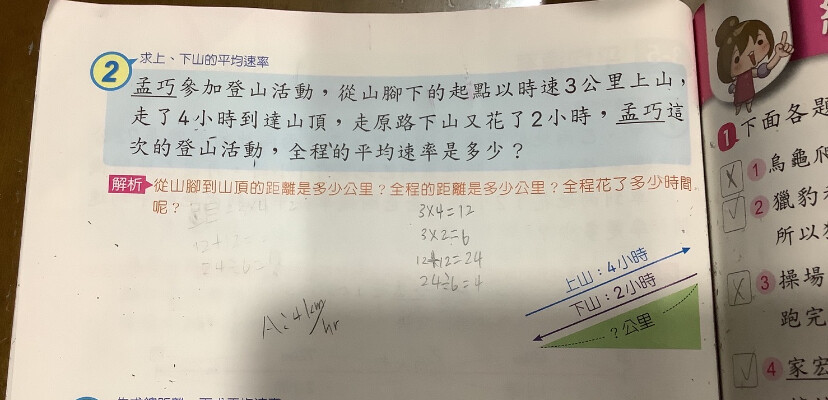 求上、下山的平均速率
2 孟巧參加登山活動，從山腳下的起點以時速3公里上山，
走了4小時到達山頂，走原路下山又花了2小時，孟巧這
次的登山活動，全程的平均速率是多少？
解析 從山腳到山頂的距離是多少公里？全程的距離是多少公里？全程花了多少時間
呢？
3×4=12
3×2=6
12+12=24
24÷6=4
A:4km/hr
上山：4小時
下山：2小時
？公里
1 下面各題
1 烏龜爬
2 獵豹
所以
3 操場
跑完
4 家宏